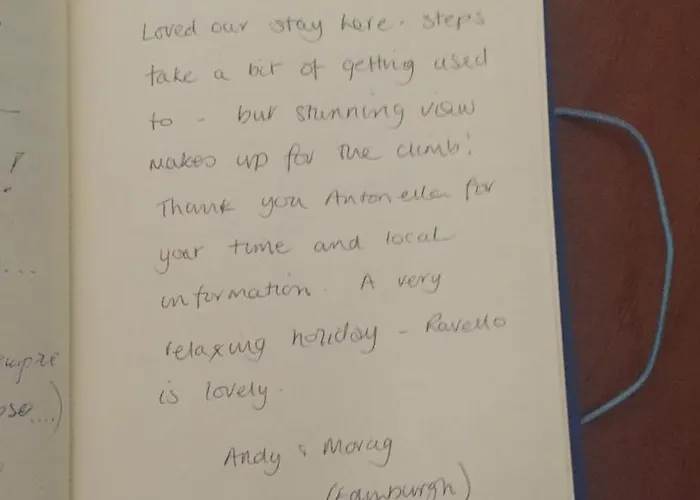 Loved our stay here. steps
take a bit of getting used
to - but stunning view
makes up for the climb!
Thank you Antonella for
your time and local
information. A very
relaxing holiday - Ravello
is lovely.
Andy & Morag
(Edinburgh)